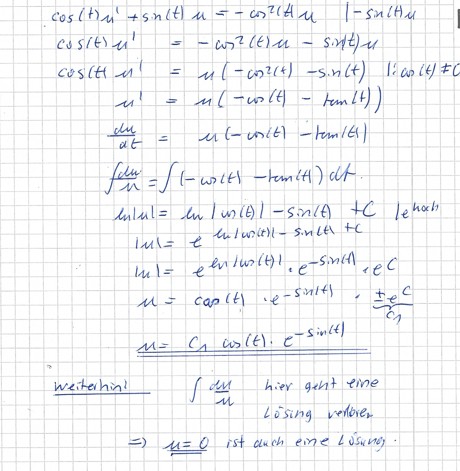 cos(t) u' + sin(t) u = -cos²(t) u | -sin(t) u
cos(t) u' = -cos²(t) u - sin(t) u
cos(t) u' = u (-cos²(t) - sin(t)) |: cos(t) ≠ 0
u' = u (-cos(t) - tan(t))
du/dt = u (-cos(t) - tan(t))
∫ du/u = ∫ (-cos(t) - tan(t)) dt
ln|u| = ln |cos(t)| - sin(t) + C | e hoch
|u| = e^(ln|cos(t)| - sin(t) + C)
|u| = e^(ln|cos(t)|) · e^(-sin(t)) · e^C
u = cos(t) · e^(-sin(t)) · ±e^C
C₁
u = C₁ cos(t) · e^(-sin(t))
weiterhin! ∫ du/u hier geht eine
Lösung verloren
=> u = 0 ist auch eine Lösung.